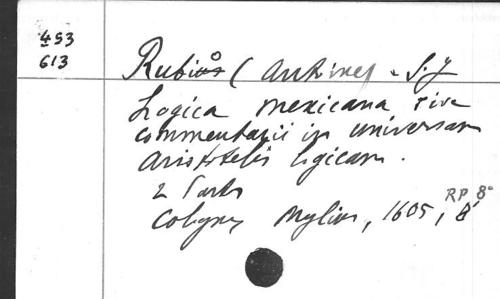 453
613
Rubio (Antoine) S.J
Logica mexicana sive
commentarii in universam
Aristotelis logicam.
2 Parts
Mylius, 1605, 8°
RP 8°